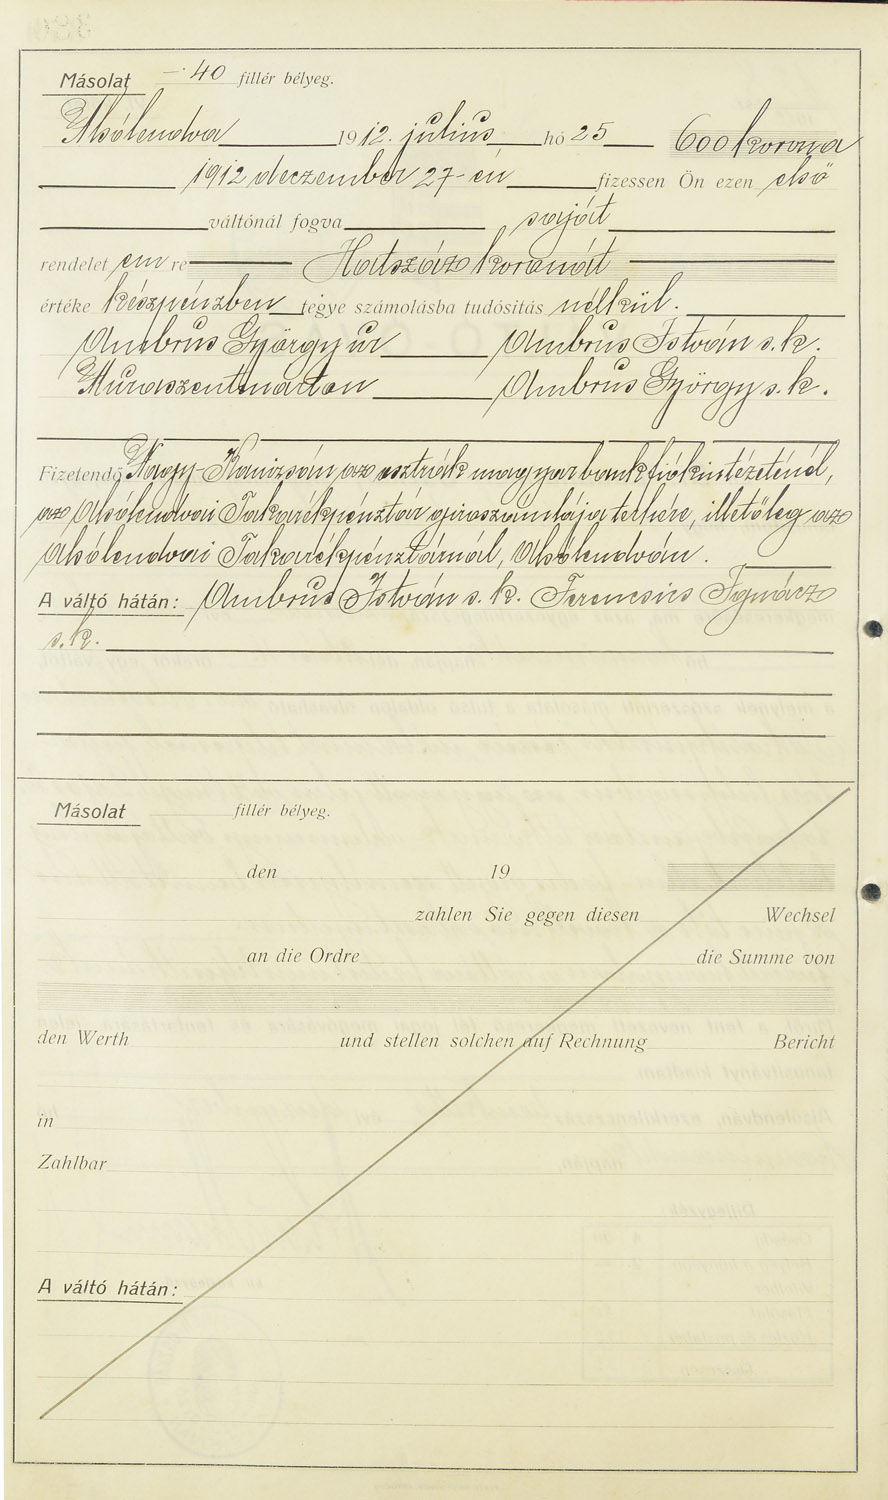 Másolat — 40 fillér bélyeg.
Alsólendva 1912. július hó 25 600 korona
1912 deczember 27-én fizessen Ön ezen első
váltónál fogva saját
rendelet em re Hatszáz koronát
értéke készpénzben tegye számolásba tudósítás nélkül.
Ambrus György úr Ambrus István s. k.
Muraszentmárton Ambrus György s. k.
Fizetendő Nagy-Kanizsán az osztrák magyar bank fiókintézeténél,
az Alsólendvai Takarékpénztár giroszámlája terhére, illetőleg az
Alsólendvai Takarékpénztárnál, Alsólendván.
A váltó hátán: Ambrus István s. k. Ferencsics Ignácz
s. k.
Másolat fillér bélyeg.
den 19
zahlen Sie gegen diesen Wechsel
an die Ordre die Summe von
den Werth und stellen solchen auf Rechnung Bericht
in
Zahlbar
A váltó hátán: